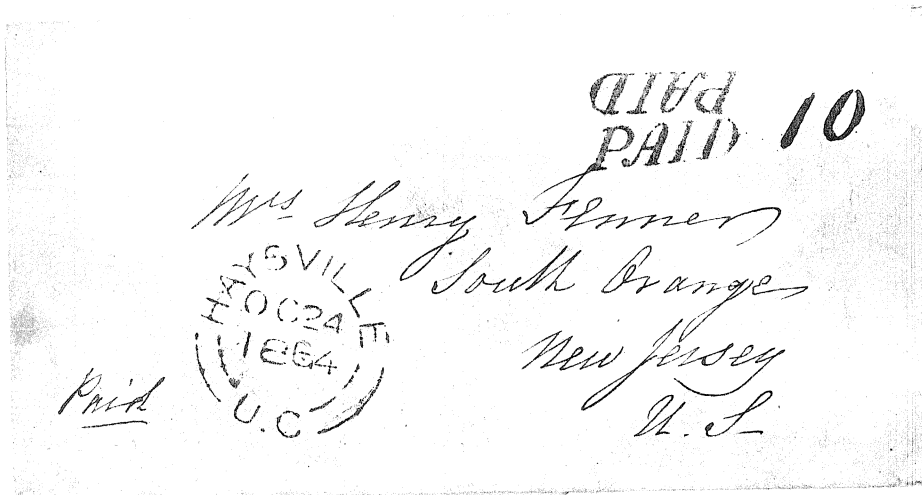 PAID
PAID 10
Mrs Henry Fenner
South Orange
New Jersey
U. S.
HAYSVILLE
OC 24
1864
U.C
Paid